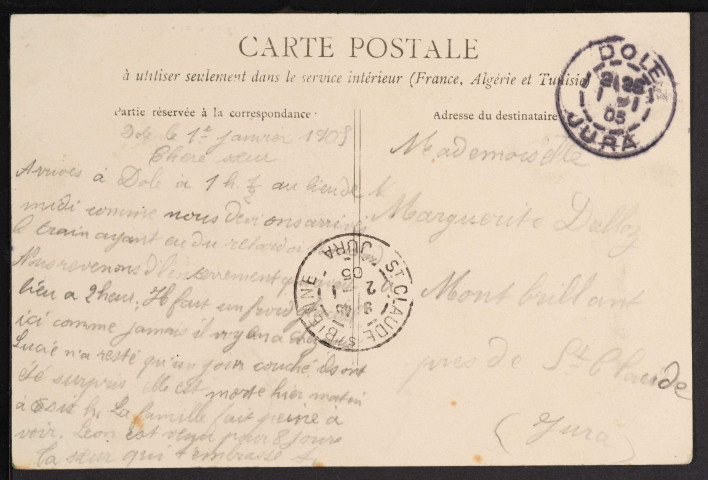 CARTE POSTALE
à utiliser seulement dans le service intérieur (France, Algérie et Tunisie)
Partie réservée à la correspondance
Dole le 1er janvier 1905
Chère sœur
Arrivés à Dole à 1 h ½ au lieu de
midi comme nous devions arriver
le train ayant eu du retard
Nous revenons d'l'enterrement qui
lieu a 2 heur. Il fait un froid
ici comme jamais il n'y en a
Lucie n'a resté qu'un jour couché, ils ont
été surpris elle est morte hier matin
à six h. La famille fait peine à
voir. Leon est venu pour 8 jours
ta sœur qui t'embrasse
Adresse du destinataire
Mademoiselle
Marguerite Dalloz
à Montbrillant
près de St Claude
(Jura)
DOLE
JURA
05
ST CLAUDE S/ BIENNE
JURA
2 1
05